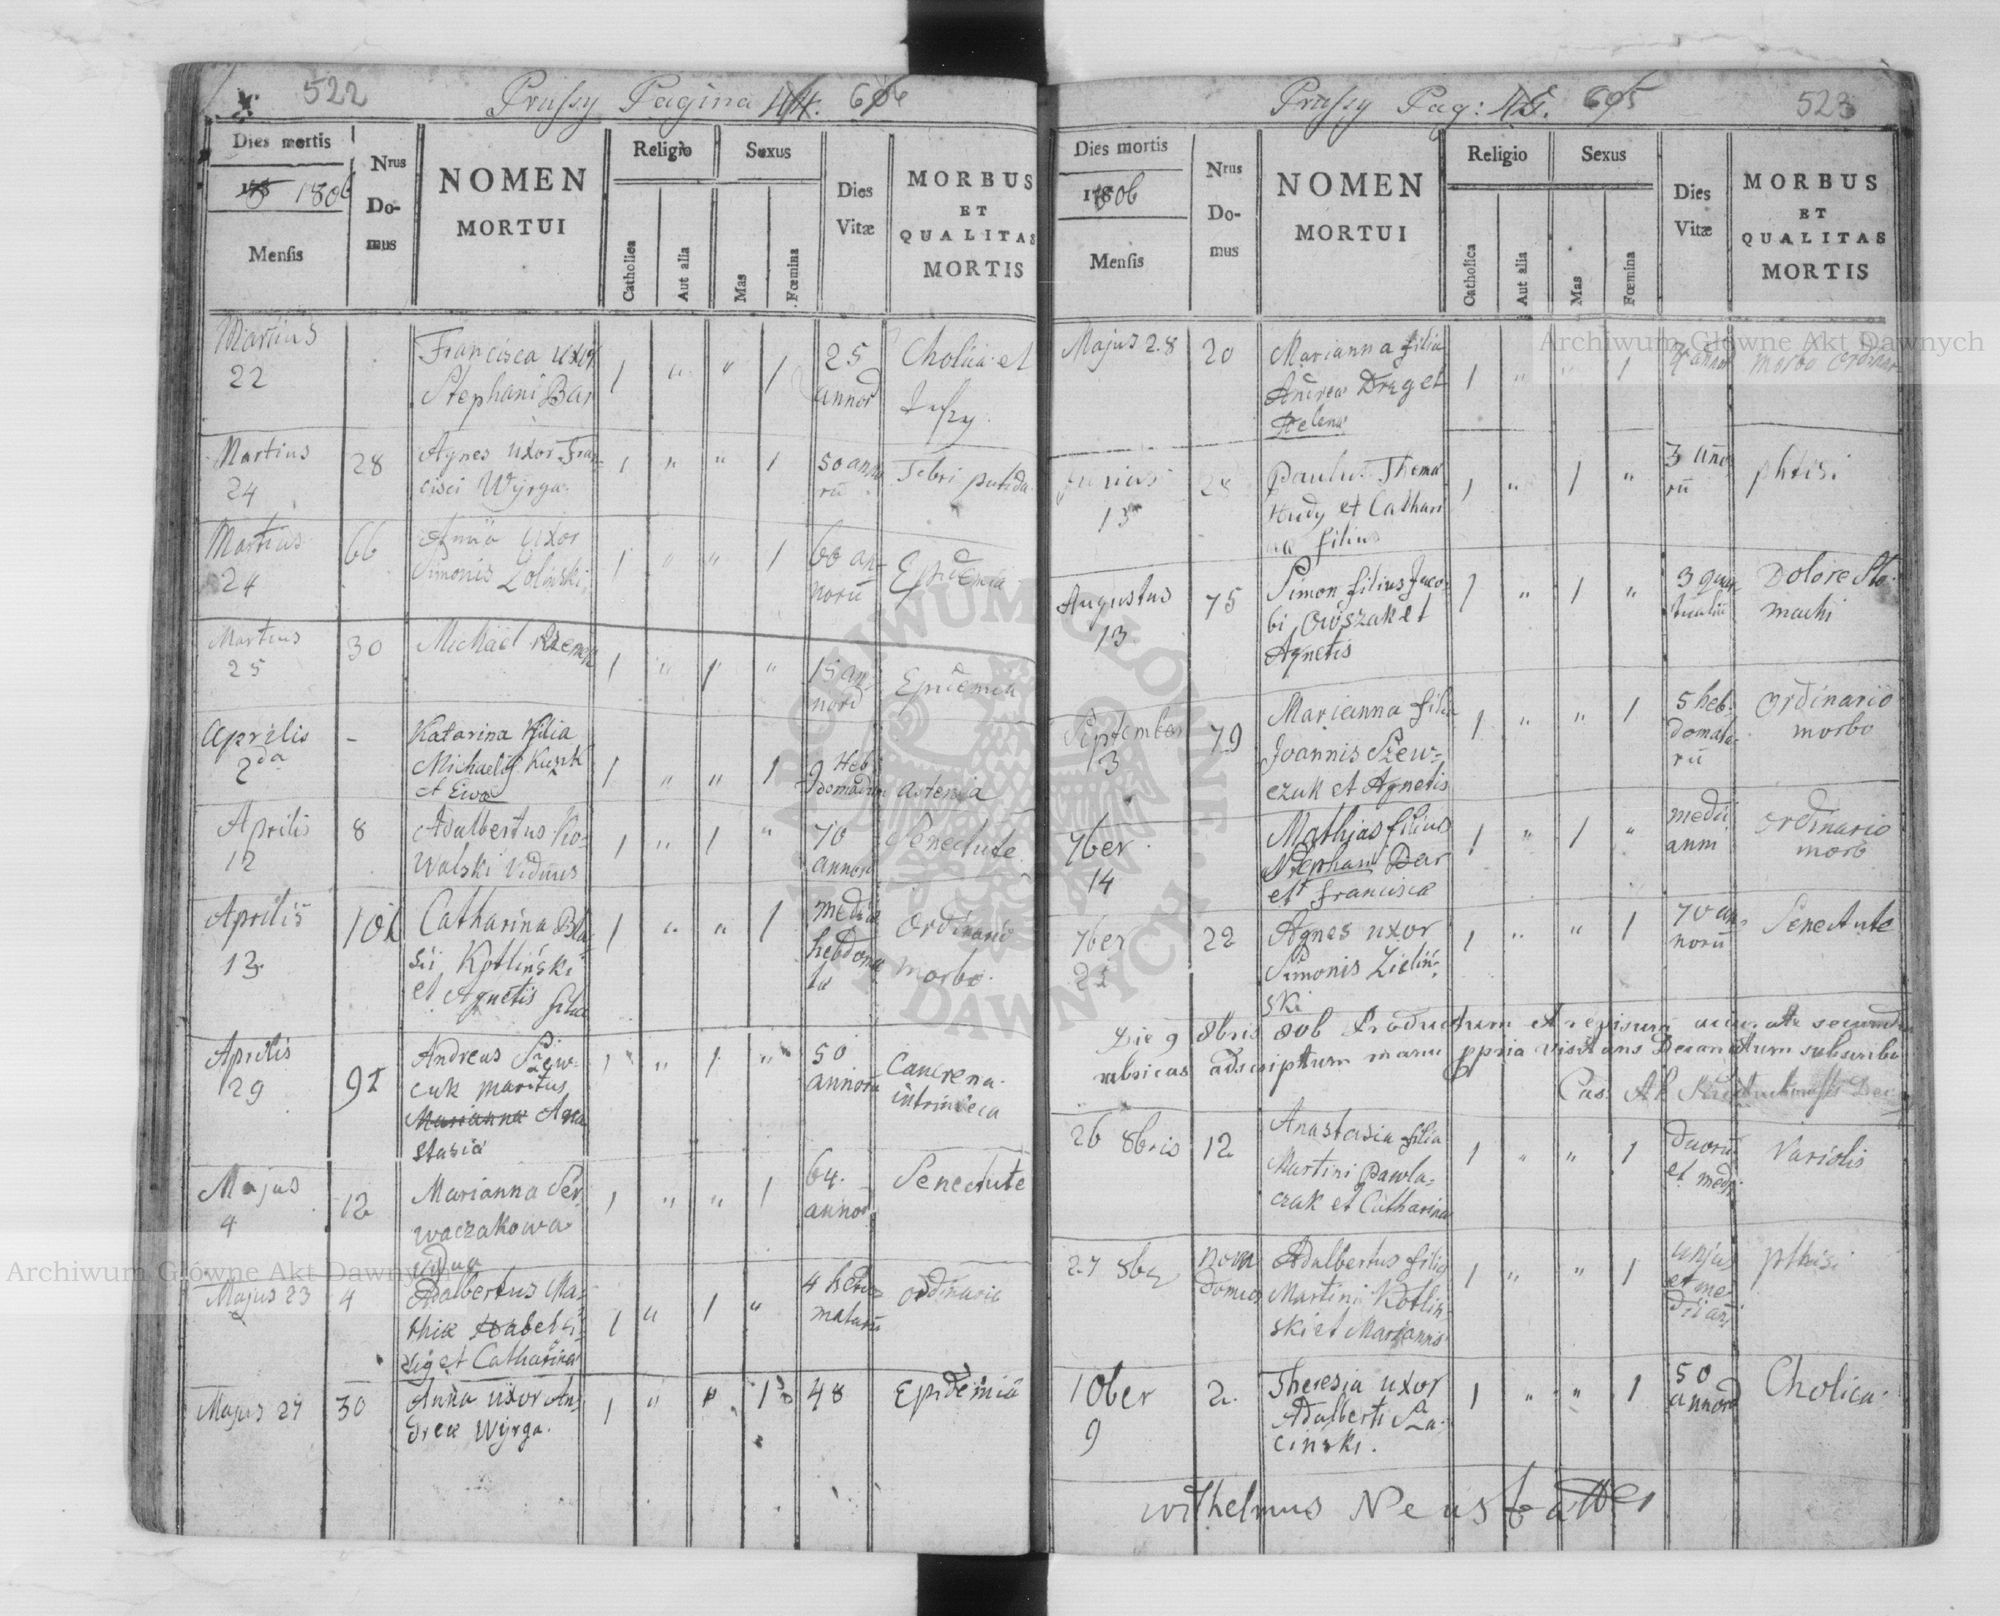 522
Prussy Pagina 44.
Dies mortis
1806
Mensis
Nrus
Do-
mus
NOMEN
MORTUI
Religio
Catholica
Aut alia
Sexus
Mas
Fœmina
Dies
Vitæ
MORBUS
ET
QUALITAS
MORTIS
Martius
22
Francisca uxor
Stephani Bar
1 " " 1
25
annor
Cholica et
Martius
24
28
Agnes uxor Fran-
cisci Wyrga.
1 " " 1
50 anno
rū
Febri putrida
Martius
24
66
Anna uxor
Simonis
1 " " 1
60 an-
norū
Epidemia
Martius
25
30
Michael
1 " 1 "
15 an
nord
Epidemia
Aprilis
2da
-
Katarina filia
Michaelis
et Ewa
1 " " 1
9 Heb
domadum
astenia
Aprilis
12
8
Adalbertus Ko-
walski viduus
1 " 1 "
70
annor
Senectute
Aprilis
13
101
Catharina Bla-
sii Kotliński
et Agnetis filia
1 " " 1
media
hebdoma
da
Ordinario
morbo.
Aprilis
29
91
Andreas Szew-
cuk maritus
Marianna Ana
stasia
1 " 1 "
50
annoru
Cancrena
intrinseca
Majus
4
12
Marianna Ser
waczakowa
vidua
1 " " 1
64.
annor
Senectute
Majus 23
4
Adalbertus Ma-
thiæ
et Catharina
1 " 1 "
4 hebdo
madarū
ordinario
Majus 27
30
Anna uxor An-
dreæ Wyrga.
1 " " 1
48
Epidemia
Prussy Pag: 45.
523
Dies mortis
1806
Mensis
Nrus
Do-
mus
NOMEN
MORTUI
Religio
Catholica
Aut alia
Sexus
Mas
Fœmina
Dies
Vitæ
MORBUS
ET
QUALITAS
MORTIS
Majus 28
20
Marianna filia
Andreæ Drąg et
Helena
1 " " 1
4 annor
morbo ordinar
Junius
13
Paulus Thoma
Hudy et Cathari
na filius
1 " 1 "
3 año
rū
phtisi
Augustus
13
75
Simon filius Jaco-
bi Owszak et
Agnetis
1 " 1 "
3
Dolore Sto-
machi
September
13
79
Marianna filia
Joannis Szew-
czuk et Agnetis
1 " " 1
5 heb-
domada-
rū
Ordinario
morbo
7ber
14
Mathias filius
Stephani Bar
et Francisca
1 " 1 "
medii
anni
ordinario
morb
7ber
22
Agnes uxor
Simonis Zieliń-
ski
1 " " 1
70 an-
norū
Senectute
Die 9 8bris 806 Productum et revisum accurate secundum
rubricas adscriptum manu ppria visitans Decanatum subscribo
26 8bris
12
Anastasia filia
Martini Pawla-
czak et Catharina
1 " " 1
duorū
et medi
Variolis
27 8br
nova
domus
Adalbertus filius
Martini Kotlin-
ski et Marianna
1 " " 1
unius
et me
dii ani
pthisi
10ber
9
2.
Theresia uxor
Adalberti Sza-
cinski.
1 " " 1
50
annord
Cholica
Wilhelmus
Archiwum Główne Akt Dawnych
Archiwum Główne Akt Dawnych
ARCHIWUM GŁÓWNE AKT DAWNYCH